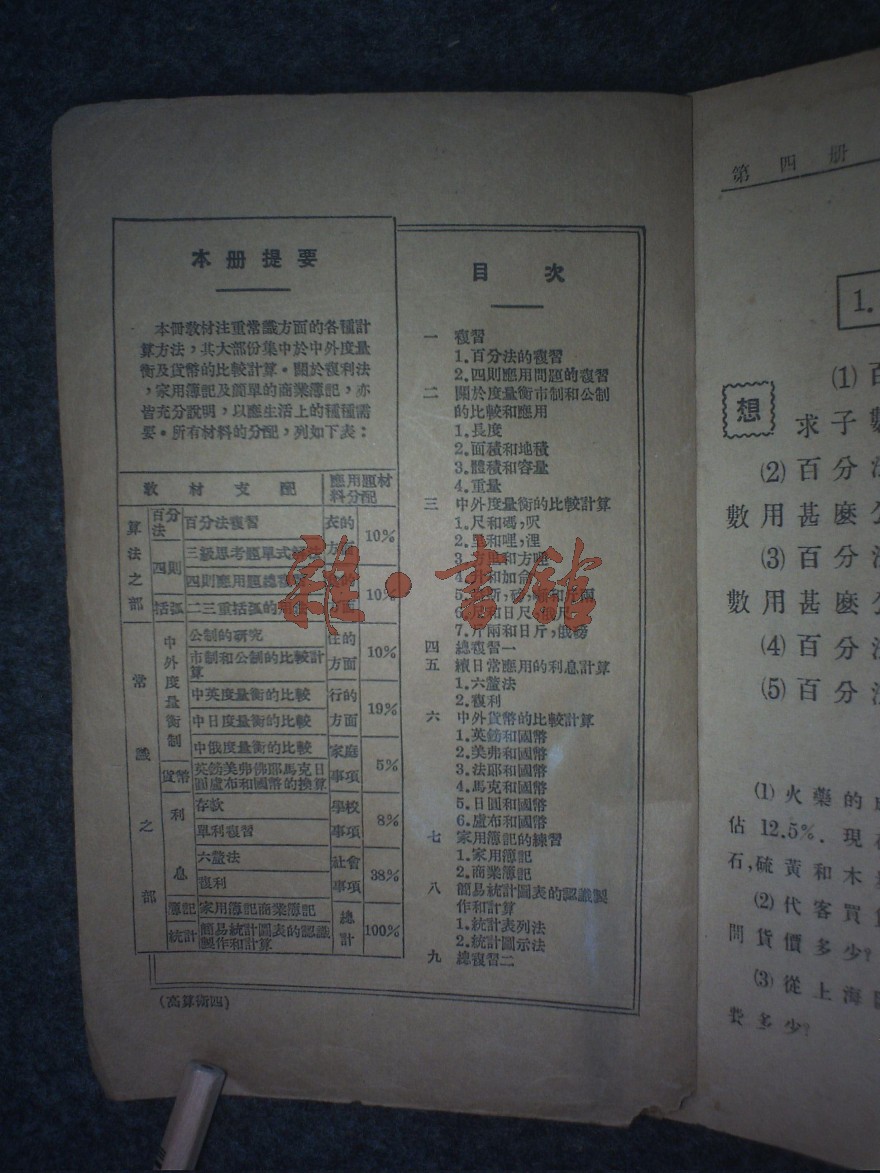 本册提要
本冊教材注重常識方面的各種計
算方法，其大部份集中於中外度量
衡及貨幣的比較計算。關於複利法
，家用簿記及簡單的商業簿記，亦
皆充分說明，以應生活上的種種需
要。所有材料的分配，列如下表：
教材支配 應用題材料分配
算法之部
百分法 百分法複習
四則
四則應用題總複習
括弧 二三重括弧的
衣的方面 10%
10%
常識之部
中外度量衡制
公制的研究
市制和公制的比較計算
中英度量衡的比較
中日度量衡的比較
中俄度量衡的比較
住的方面 10%
行的方面 19%
貨幣 英鎊美弗佛郎馬克日圓盧布和國幣的換算
家庭事項 5%
利息
存款
單利複習
六釐法
複利
學校事項 8%
社會事項 38%
簿記 家用簿記商業簿記
統計 簡易統計圖表的認識製作和計算
總計 100%
(高算術四)
目次
一 複習
1.百分法的複習
2.四則應用問題的複習
二 關於度量衡市制和公制
的比較和應用
1.長度
2.面積和地積
3.體積和容量
4.重量
三 中外度量衡的比較計算
1.尺和碼，呎
2.里和哩，浬
3.方里和方哩
4.升和加侖
6.尺和日尺，俄尺
7.斤兩和日斤，俄磅
四 總複習一
五 續日常應用的利息計算
1.六釐法
2.複利
六 中外貨幣的比較計算
1.英鎊和國幣
2.美弗和國幣
3.法郎和國幣
4.馬克和國幣
5.日圓和國幣
6.盧布和國幣
七 家用簿記的練習
1.家用簿記
2.商業簿記
八 簡易統計圖表的認識製
作和計算
1.統計表列法
2.統計圖示法
九 總複習二
雜·書館
第四册
1.
想
(1) 百
求子數
(2) 百分法
數用甚麼公
(3) 百分法
數用甚麼公
(4) 百分法
(5) 百分法
(1) 火藥的
佔 12.5%. 現
石,硫黃和木
(2) 代客買
問貨價多少?
(3) 從上海
費多少?